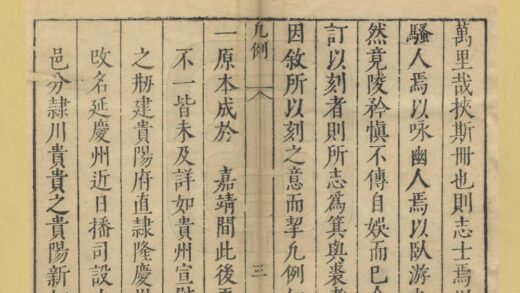 萬里哉挾斯冊也則志士焉
騷人焉以咏幽人焉以臥游
然竟陵矜愼不傳自娛而已
訂以刻者則所志爲箕與裘
因敘所以刻之意而挈凡例
凡例
三
一原本成於　嘉靖間此後
不一皆未及詳如貴州宣
之剏建貴陽府直隸隆慶
攺名延慶州近日播司設
邑分隸川貴貴之貴陽新